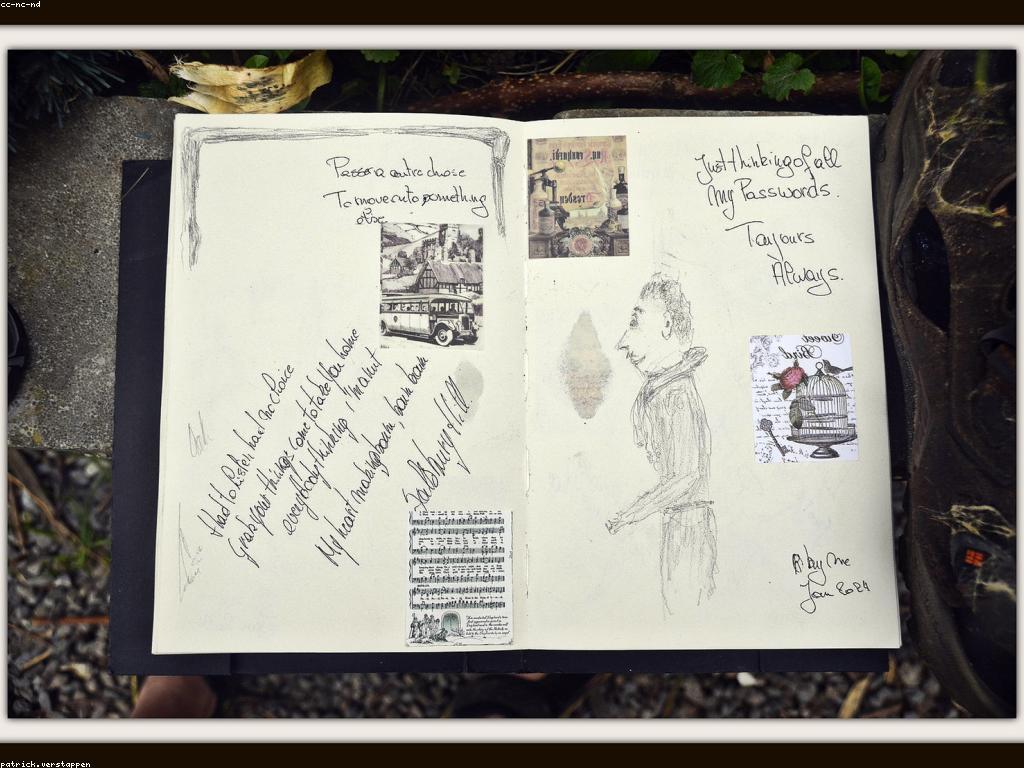 cc-nc-nd
Passer a autre chose
To move onto something
else
I had to listen had no choice
Grab your things come to take You home
everybody thinking I'm a nut
My heart making boom, boom boom
Solsbury Hill
Dresden
Just thinking of all
My Passwords.
Toujours
Always.
Sweet
Bird
by me
Jan 2024
patrick.verstappen